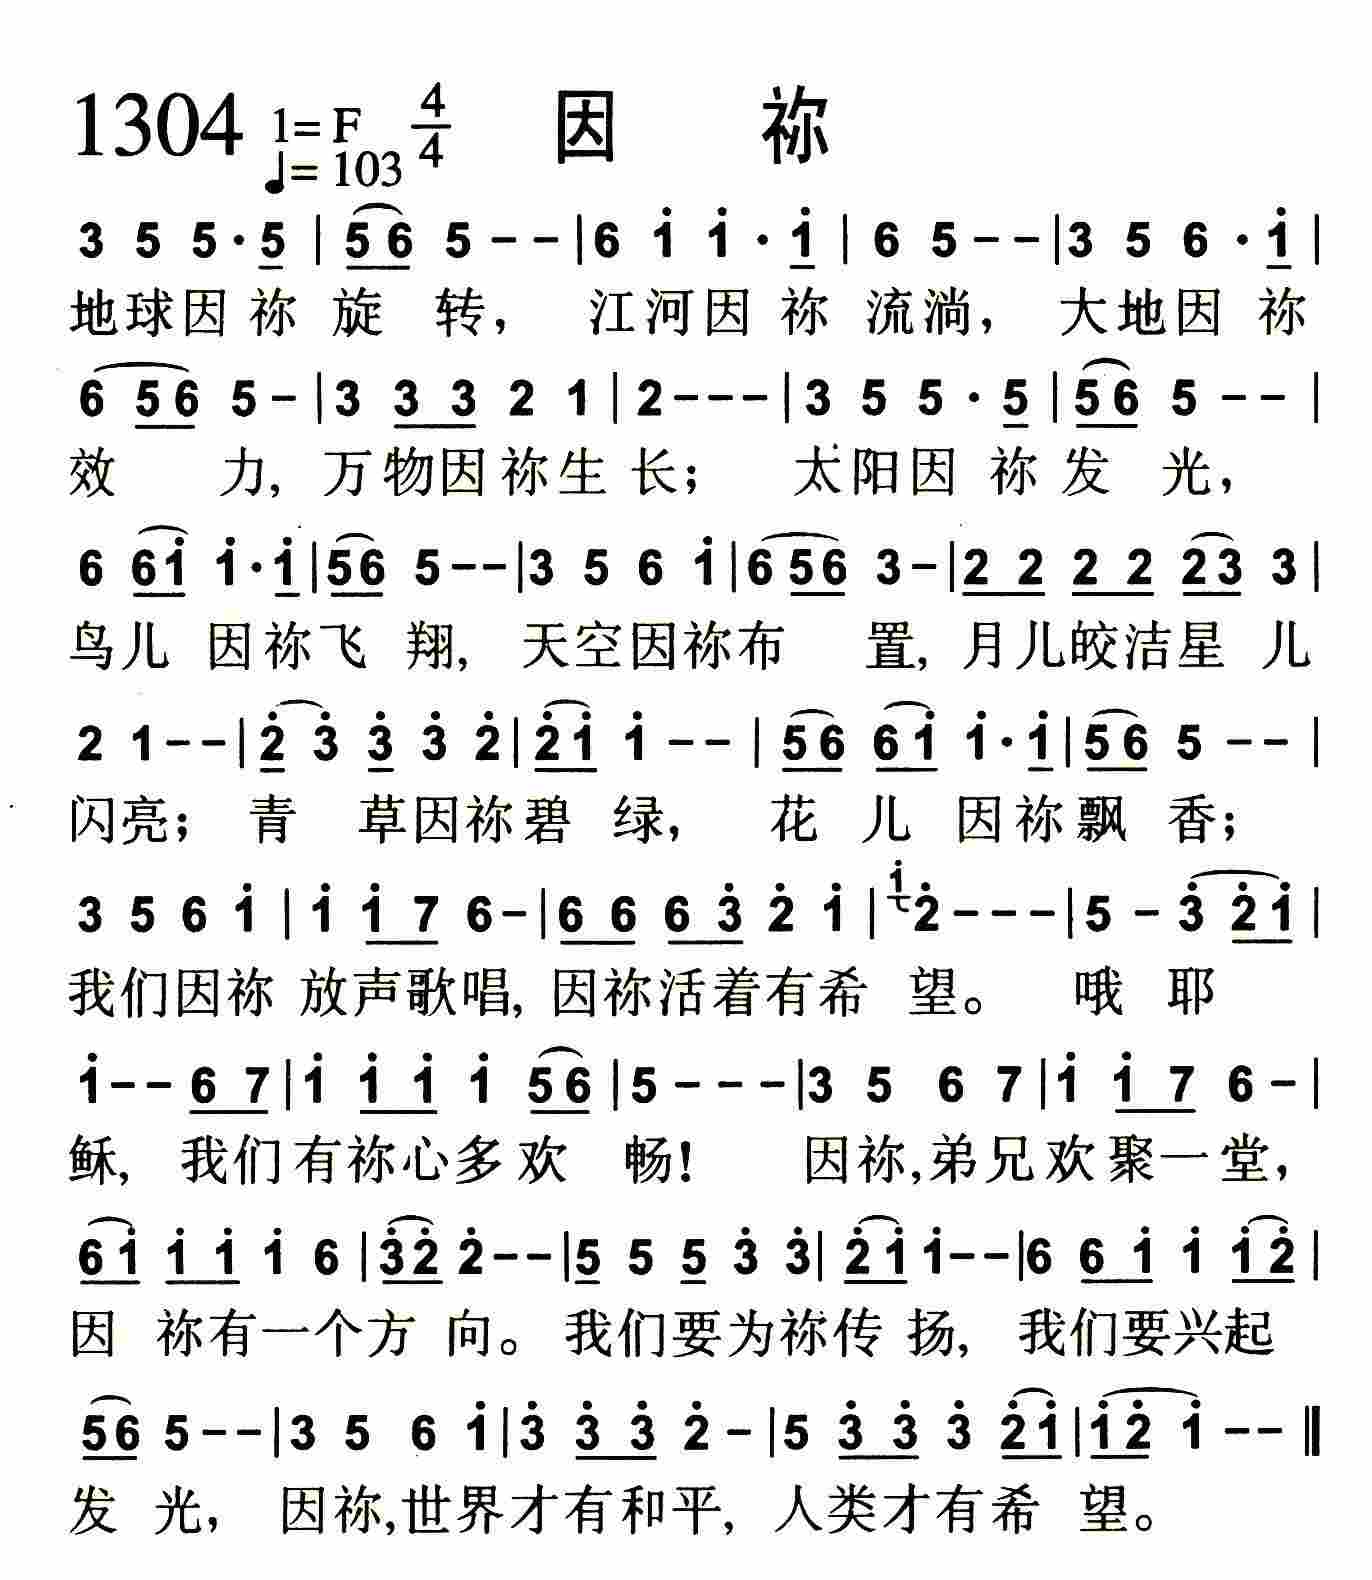 1304 1=F 4/4 因 祢
♩=103
3 5 5·5 | 5 6 5 - - | 6 i i·i | 6 5 - - | 3 5 6·i |
地球因祢 旋 转， 江河因 祢 流淌， 大地因 祢
6 5 6 5 - | 3 3 3 2 1 | 2 - - - | 3 5 5·5 | 5 6 5 - - |
效 力, 万物因祢生 长； 太阳因 祢 发 光，
6 6 i i·i | 5 6 5 - - | 3 5 6 i | 6 5 6 3 - | 2 2 2 2 2 3 3 |
鸟儿 因祢飞 翔, 天空因祢布 置, 月儿皎洁星 儿
2 1 - - | 2 3 3 3 2 | 2 i i - - | 5 6 6 i i·i | 5 6 5 - - |
闪亮； 青 草因祢碧 绿， 花 儿 因祢飘 香；
3 5 6 i | i i 7 6 - | 6 6 6 3 2 i | i 2 - - - | 5 - 3 2 i |
我们因祢 放声歌唱, 因祢活着有希 望。 哦 耶
i - - 6 7 | i i i i 5 6 | 5 - - - | 3 5 6 7 | i i 7 6 - |
稣, 我们有祢心多欢 畅! 因祢,弟兄欢聚一堂，
6 i i i i 6 | 3 2 2 - - | 5 5 5 3 3 | 2 i i - - | 6 6 i i i 2 |
因 祢有一个方 向。我们要为祢传 扬, 我们要兴起
5 6 5 - - | 3 5 6 i | 3 3 3 2 - | 5 3 3 3 2 i | i 2 i - - ‖
发 光， 因祢,世界才有和平, 人类才有希 望。